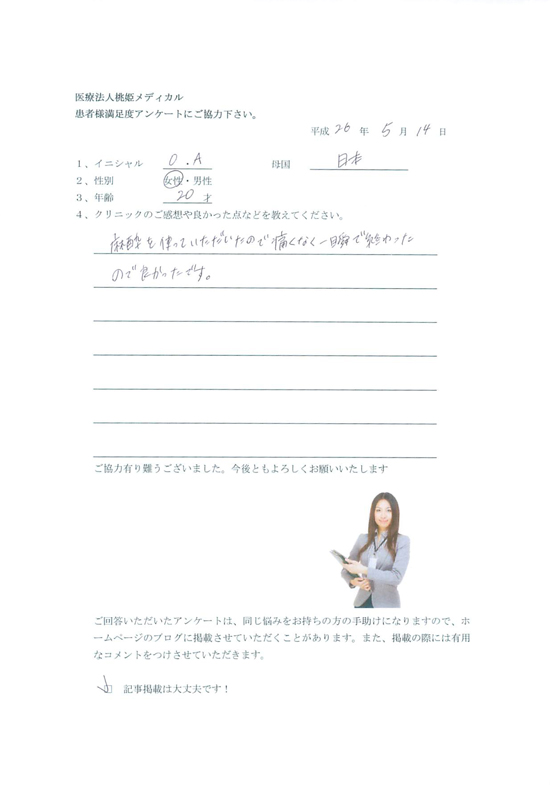 医療法人桃姫メディカル
患者様満足度アンケートにご協力下さい。
平成 26 年 5 月 14 日
1、イニシャル O.A 母国 日本
2、性別 女性・男性
3、年齢 20 才
4、クリニックのご感想や良かった点などを教えてください。
麻酔を使っていただいたので痛くなく一瞬で終わった
ので良かったです。
ご協力有り難うございました。今後ともよろしくお願いいたします
ご回答いただいたアンケートは、同じ悩みをお持ちの方の手助けになりますので、ホ
ームページのブログに掲載させていただくことがあります。また、掲載の際には有用
なコメントをつけさせていただきます。
記事掲載は大丈夫です！